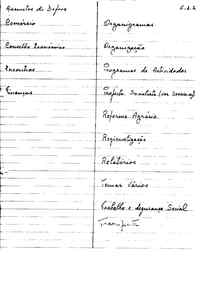 Assuntos de Defesa
Comércio
Conselho Económico
Executivo
Finanças
Organigramas
Organização
Programas de Actividades
Projecto
Reforma Agrária
Regionalização
Relatórios
Temas Vários
Trabalho e Segurança Social
Transporte